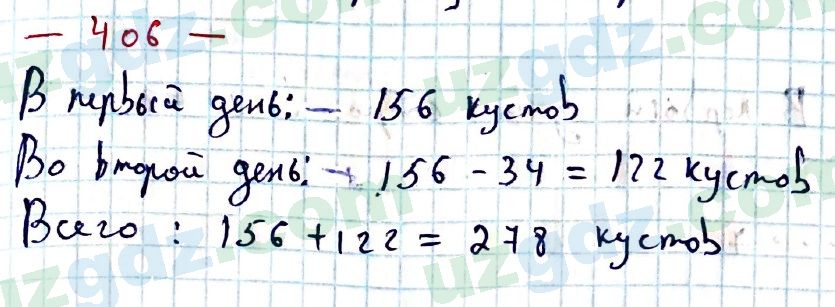 — 406 —
В первый день: — 156 кустов
Во второй день: - 156 - 34 = 122 кустов
Всего : 156 + 122 = 278 кустов